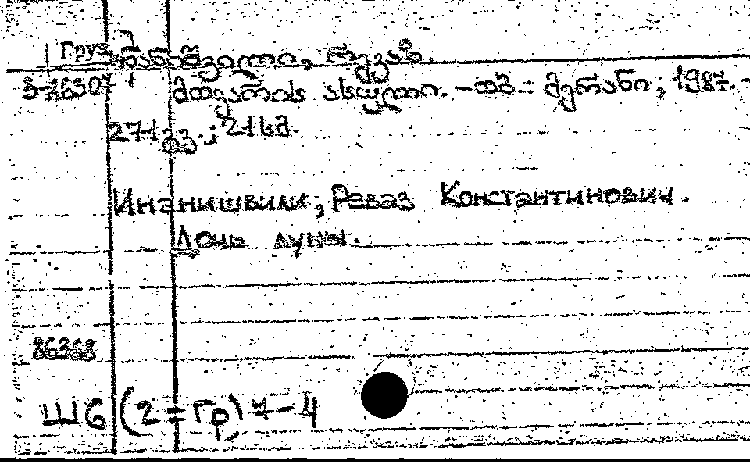 Груз.
ინანიშვილი, რევაზ.
3-76307 მთვარის ასული. – თბ.: მერანი, 1987. –
271 გვ.; 21 სმ.
Инанишвили, Реваз Константинович.
Дочь луны.
86368
Ш6(2=Гр)7-4